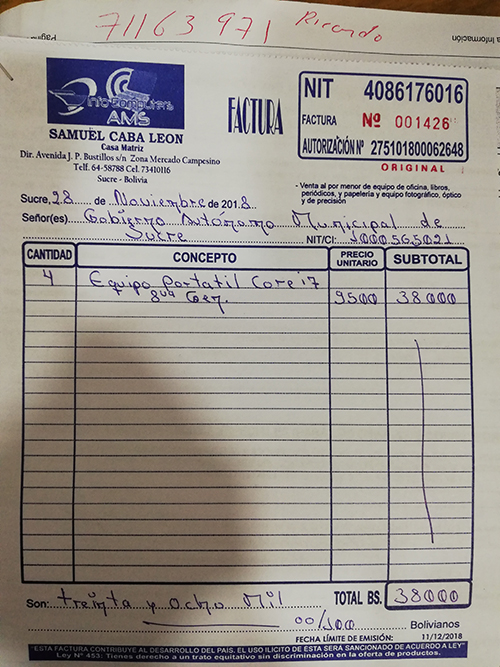 71163971 Ricardo
Página
a Información
Info Computers
AMS
SAMUEL CABA LEON
Casa Matriz
Dir. Avenida J. P. Bustillos s/n Zona Mercado Campesino
Telf. 64-58788 Cel. 73410116
Sucre - Bolivia
FACTURA
NIT 4086176016
FACTURA Nº 001426
AUTORIZACIÓN Nº 275101800062648
ORIGINAL
- Venta al por menor de equipo de oficina, libros,
periódicos, y papelería y equipo fotográfico, óptico
y de precisión
Sucre, 28 de Noviembre de 2018
Señor(es) Gobierno Autónomo Municipal de
Sucre NIT/CI: 1000565021
CANTIDAD CONCEPTO PRECIO UNITARIO SUBTOTAL
4 Equipo Portatil Core i7
8va Gen. 9500 38000
Son: treinta y Ocho Mil TOTAL BS. 38000
00/100 Bolivianos
FECHA LÍMITE DE EMISIÓN: 11/12/2018
"ESTA FACTURA CONTRIBUYE AL DESARROLLO DEL PAÍS. EL USO ILÍCITO DE ÉSTA SERÁ SANCIONADO DE ACUERDO A LEY"
Ley Nº 453: Tienes derecho a un trato equitativo sin discriminación en la oferta de productos.